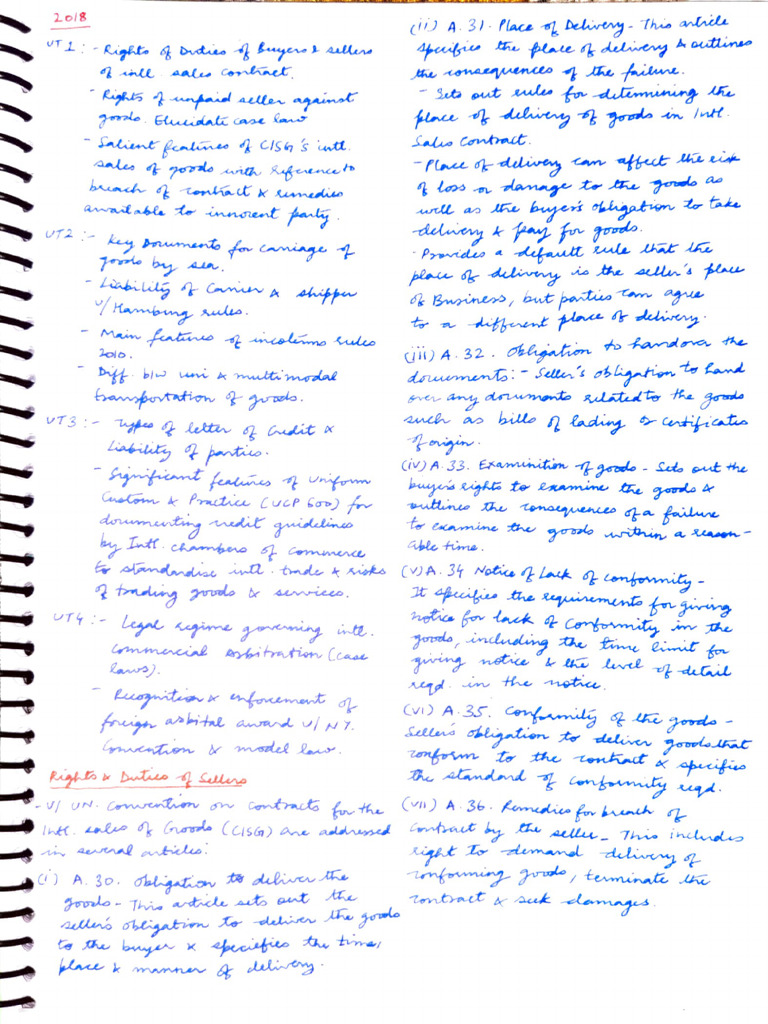 2018
UT 1 :- Rights of Duties of Buyers & sellers
of intl sales contract.
- Rights of unpaid seller against
goods. Elucidate case law
- Salient features of CISG's intl.
sales of goods with reference to
breach of contract & remedies
available to innocent party.
UT2 :- Key Documents for carriage of
goods by sea.
- Liability of Carrier & shipper
u/ Hamburg rules.
- Main features of incoterms rules
2010.
- Diff. b/w uni & multimodal
transportation of goods.
UT3 :- Types of letter of Credit &
Liability of parties.
- Significant features of Uniform
Custom & Practice (UCP 600) for
documenting credit guidelines
by Intl. chambers of commerce
to standardise intl. trade & risks
of trading goods & services.
UT4 :- Legal regime governing intl.
commercial arbitration (case
laws).
- Recognition & enforcement of
foreign arbital award u/ N.Y.
Convention & model law.
Rights & Duties of Sellers
- U/ UN. Convention on contracts for the
Intl. sales of Goods (CISG) are addressed
in several articles:
(i) A. 30. Obligation to deliver the
goods - This article sets out the
seller's obligation to deliver the goods
to the buyer & speciefies the time,
place & manner of delivery.
(ii) A. 31. Place of Delivery - This article
specifies the place of delivery & outlines
the consequences of the failure.
- Sets out rules for determining the
place of delivery of goods in Intl.
Sales Contract.
- Place of delivery can affect the risk
of loss or damage to the goods as
well as the buyer's obligation to take
delivery & pay for goods.
- Provides a default rule that the
place of delivery is the seller's place
of Business, but parties can agree
to a different place of delivery.
(iii) A. 32. Obligation to handover the
documents:- Seller's obligation to hand
over any documents related to the goods
such as bills of lading or certificates
of origin.
(iv) A. 33. Examinition of goods - Sets out the
buyer's rights to examine the goods &
outlines the consequences of a failure
to examine the goods within a reason-
able time.
(v) A. 34 Notice of Lack of conformity -
It specifies the requirements for giving
notice for lack of Conformity in the
goods, including the time limit for
giving notice & the level of detail
reqd. in the notice.
(vi) A. 35. Conformity of the goods -
Seller's obligation to deliver goods that
conform to the contract & specifies
the standard of conformity reqd.
(vii) A. 36. Remedies for breach of
contract by the seller - This includes
right to demand delivery of
conforming goods, terminate the
contract & seek damages.